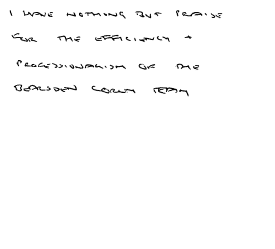 I HAVE NOTHING BUT PRAISE
FOR THE EFFICIENCY +
PROFESSIONALISM OF THE
BEARSDEN CORUM TEAM